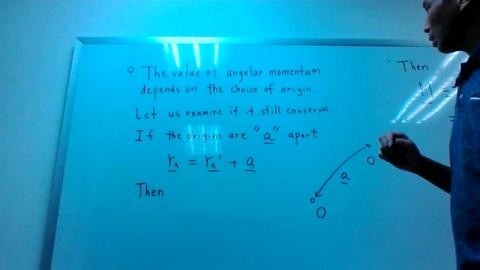 The value of angular momentum
depends on the choice of origin.
Let us examine if it still conserve.
If the origins are "a" apart
r_a = r_a' + a
Then
Then
=
a
O
O